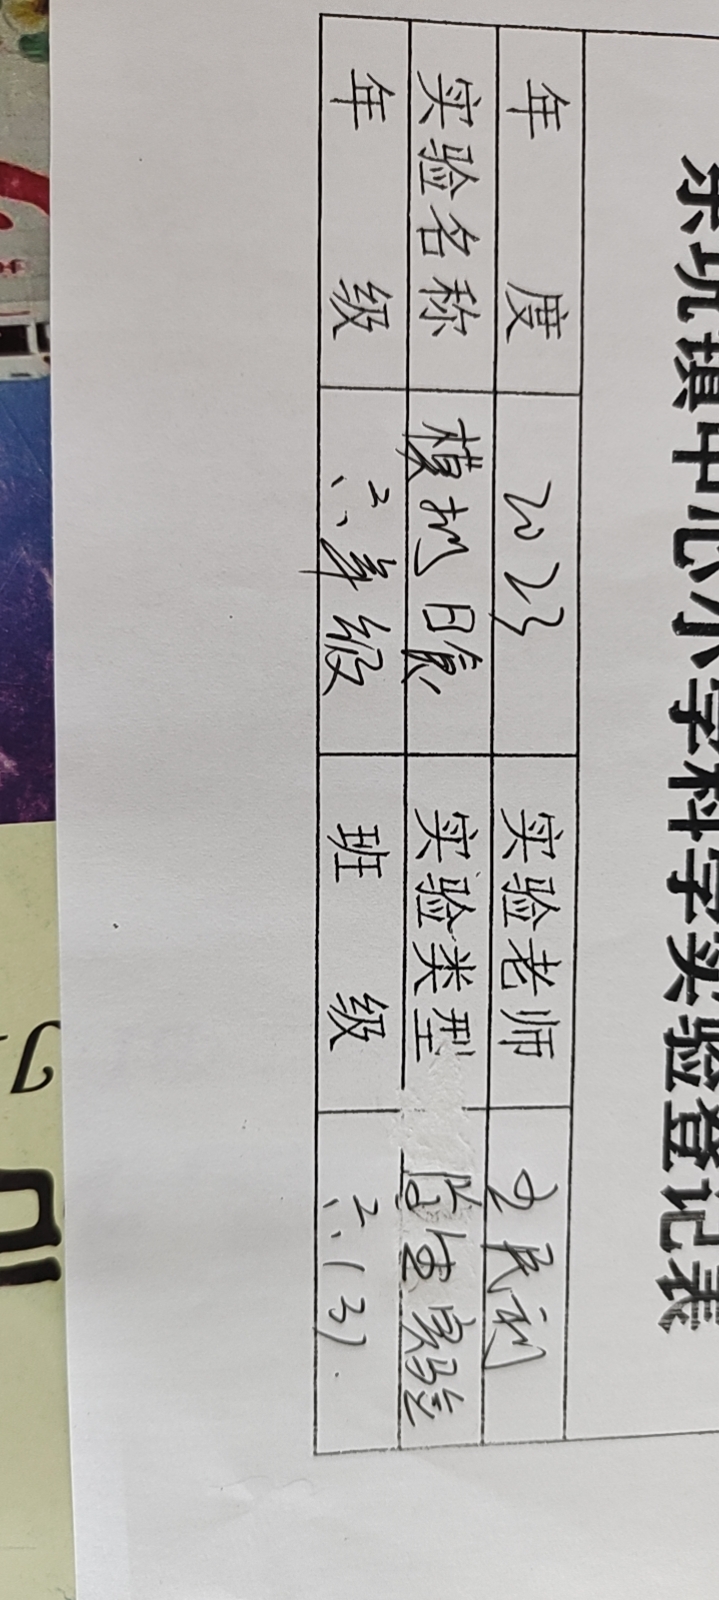 坑镇中心小学科学实验登记表
年 度 2023 实验老师
实验名称 模拟日食 实验类型 学生实验
年 级 六年级 班 级 六(3).